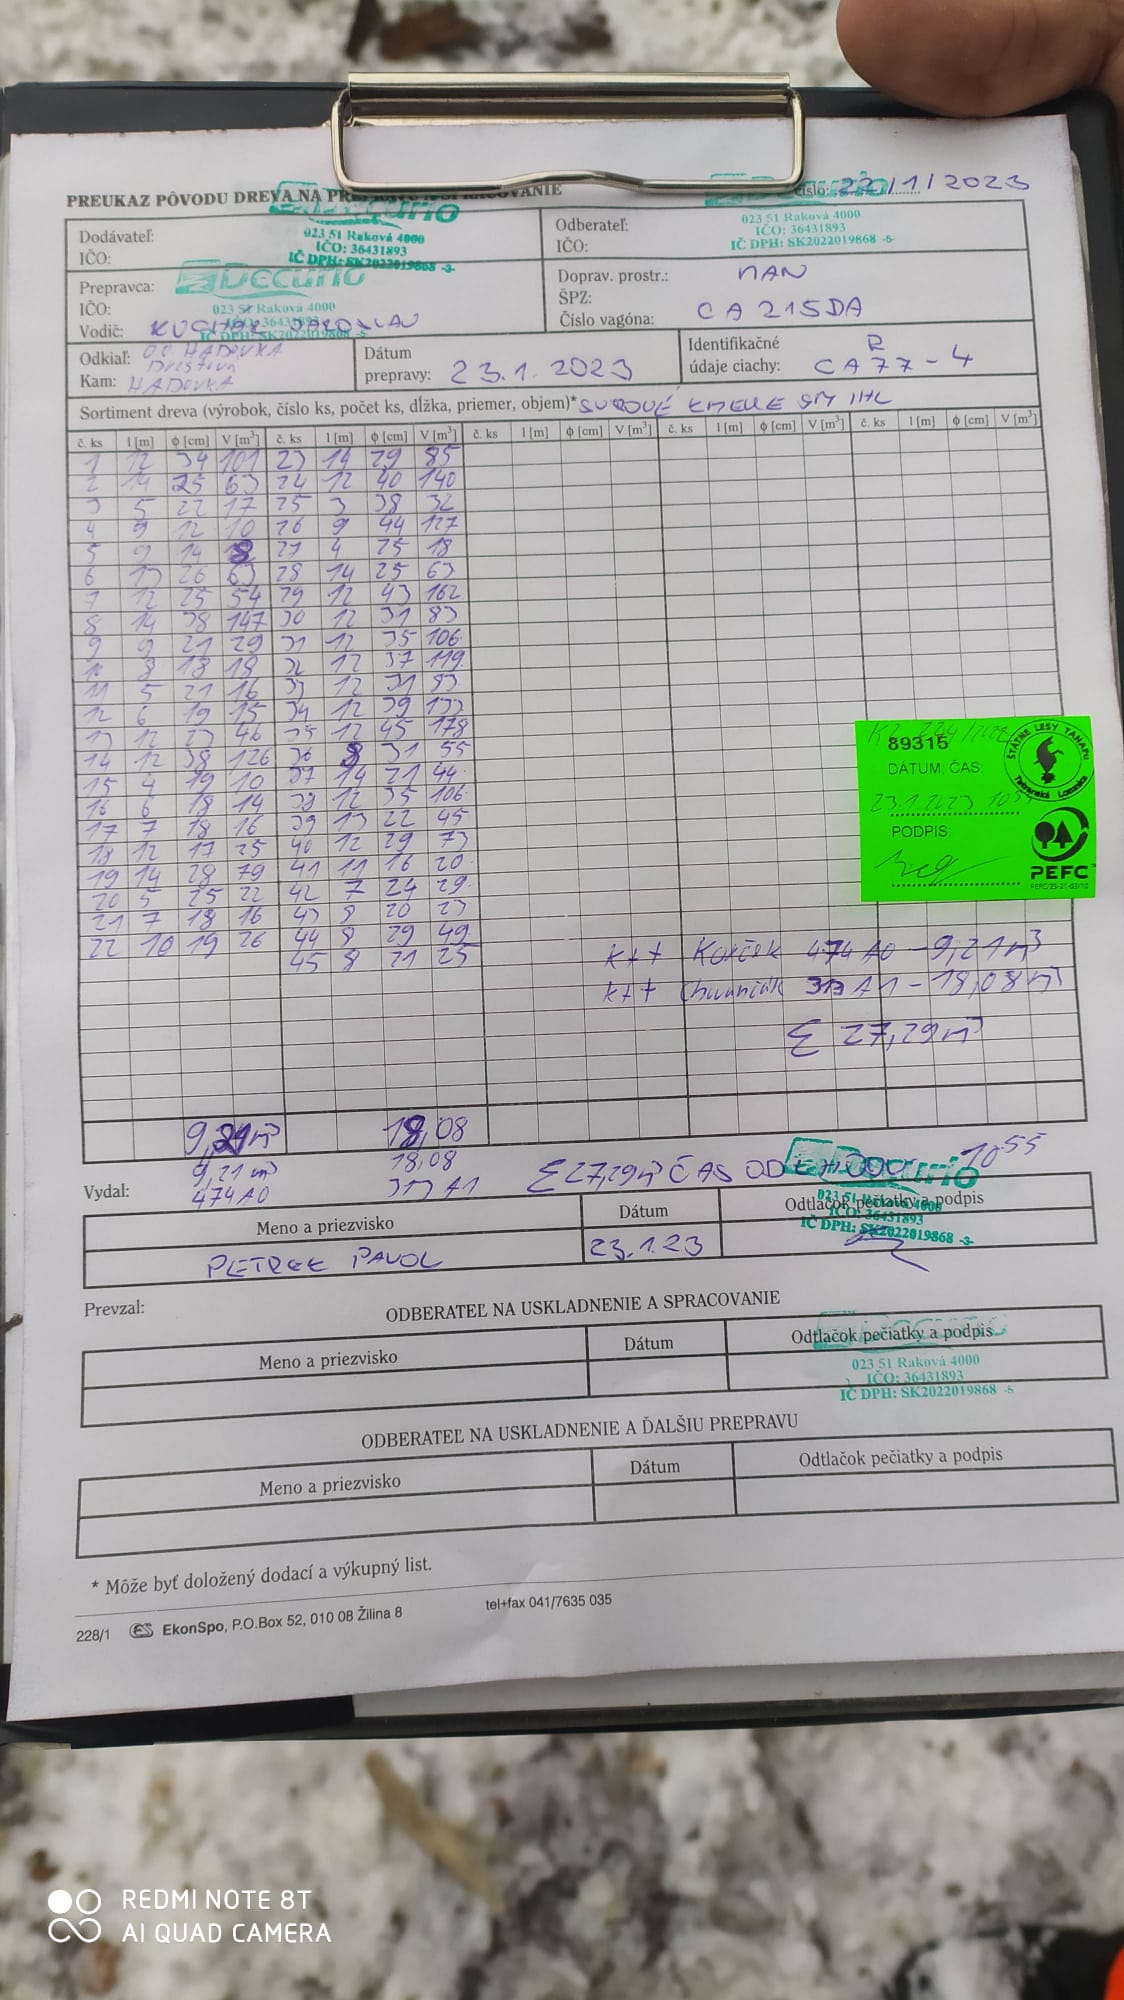 PREUKAZ PÔVODU DREVA NA
číslo: 22/1/2023
Decurio
Dodávateľ:
IČO:
023 51 Raková 4000
IČO: 36431893
IČ DPH: SK2022019868 -3-
Odberateľ:
IČO:
023 51 Raková 4000
IČO: 36431893
IČ DPH: SK2022019868 -5-
Prepravca:
IČO:
Vodič: KUCHAR JAROSLAV
Decurio
023 51 Raková 4000
IČ DPH: SK2022019868 -5-
Doprav. prostr.: MAN
ŠPZ:
Číslo vagóna: CA 215DA
Odkiaľ: O.O. HABOVKA
Kam: HABOVKA
Dátum
prepravy: 23.1.2023
Identifikačné
údaje ciachy: R CA77-4
Sortiment dreva (výrobok, číslo ks, počet ks, dĺžka, priemer, objem)* SUROVÉ KMENE SM IHL
č. ks l [m] ϕ [cm] V [m³] č. ks l [m] ϕ [cm] V [m³] č. ks l [m] ϕ [cm] V [m³] č. ks l [m] ϕ [cm] V [m³] č. ks l [m] ϕ [cm] V [m³]
1 12 34 101 23 14 29 85
2 14 25 63 24 12 40 140
3 5 22 17 25 3 38 32
4 9 12 10 26 9 44 127
5 9 14 27 4 25 18
6 13 26 63 28 14 25 63
7 12 25 54 29 12 43 162
8 14 38 147 30 12 31 83
9 9 21 29 31 12 35 106
10 8 18 18 32 12 37 119
11 5 21 16 33 12 31 83
12 6 19 15 34 12 39 133
13 12 23 46 35 12 45 178
14 12 38 126 36 8 31 55
15 4 19 10 37 14 21 44
16 6 18 14 38 12 35 106
17 7 18 16 39 13 22 45
18 12 17 25 40 12 29 73
19 14 28 79 41 11 16 20
20 5 25 22 42 7 24 29
21 7 18 16 43 8 20 23
22 10 19 26 44 8 29 49
45 8 21 25
89315
DÁTUM; ČAS:
23.1.2023
PODPIS:
ŠTÁTNE LESY TANAPU
Tatranská Lomnica
PEFC
PEFC/23-21-03/10
474 A0 - 9,21 m³
313 A1 - 18,08 m³
Σ 27,29 m³
9,21 m³ 18,08
9,21 m³ 18,08
474 A0 313 A1
Σ 27,29 m³ ČAS ODCHODU 10 55
Vydal:
Meno a priezvisko Dátum Odtlačok pečiatky a podpis
PETREK PAVOL 23.1.23
Decurio
023 51 Raková 4000
IČO: 36431893
IČ DPH: SK2022019868 -3-
Prevzal:
ODBERATEĽ NA USKLADNENIE A SPRACOVANIE
Meno a priezvisko Dátum Odtlačok pečiatky a podpis
023 51 Raková 4000
IČO: 36431893
IČ DPH: SK2022019868 -5-
ODBERATEĽ NA USKLADNENIE A ĎALŠIU PREPRAVU
Meno a priezvisko Dátum Odtlačok pečiatky a podpis
* Môže byť doložený dodací a výkupný list.
228/1 ES EkonSpo, P.O.Box 52, 010 08 Žilina 8 tel+fax 041/7635 035
REDMI NOTE 8T
AI QUAD CAMERA